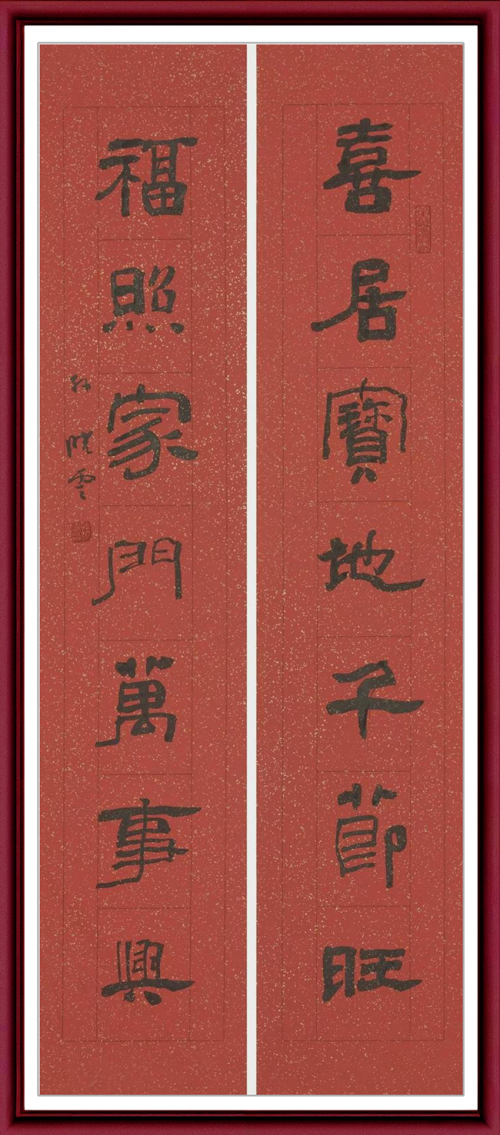 喜居寶地千節旺
福照家門萬事興
孙晓雲